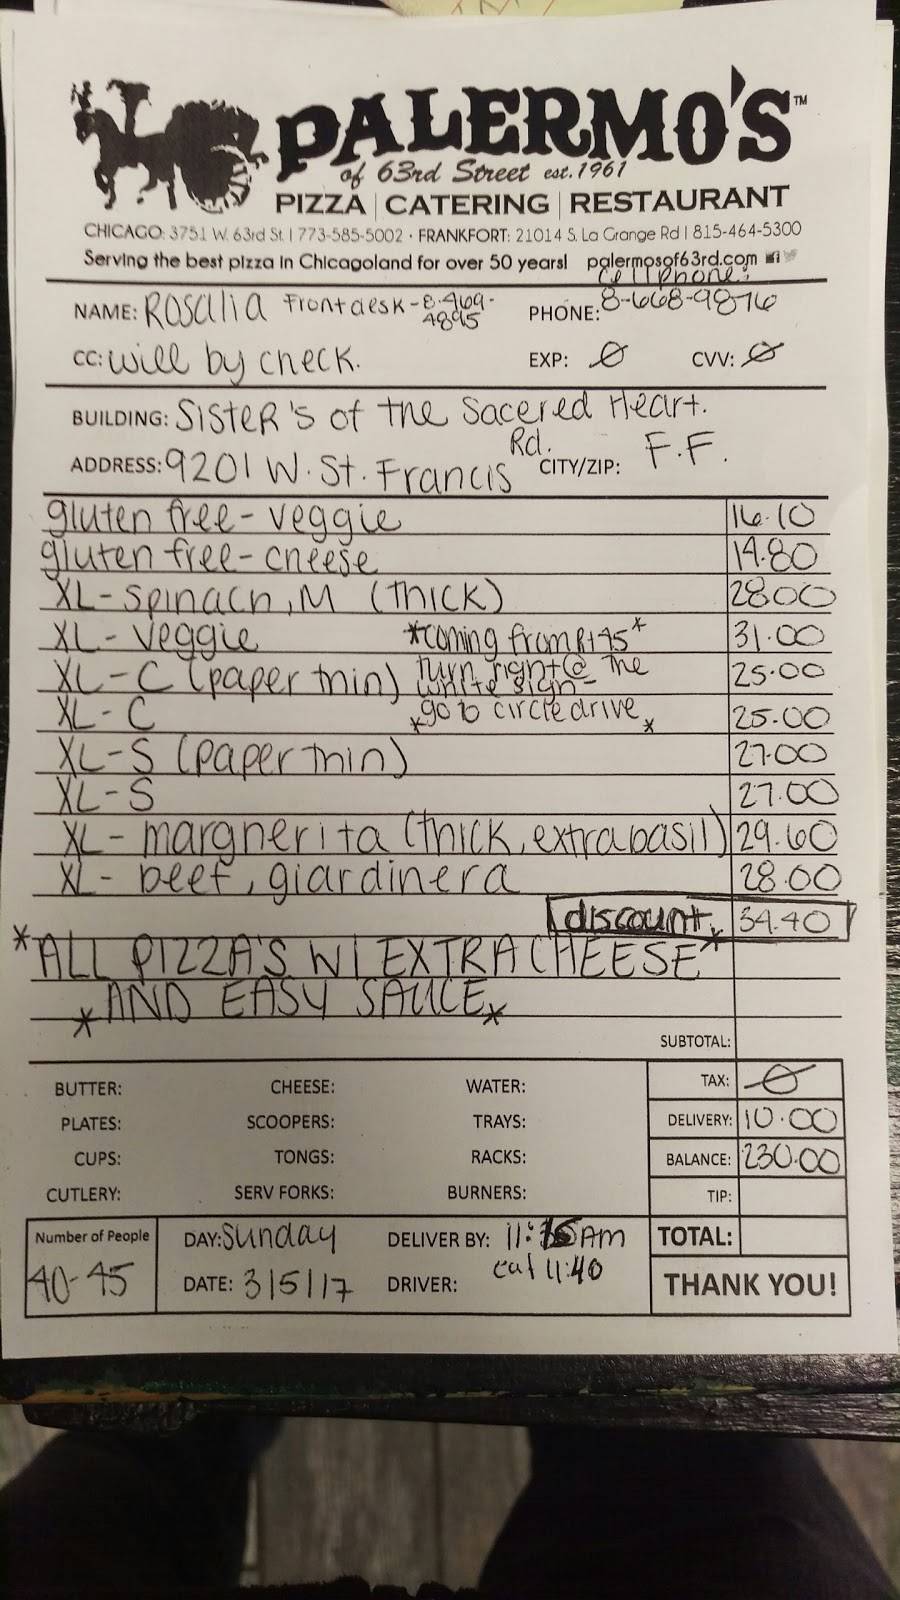 PALERMO'S™
of 63rd Street est. 1961
PIZZA | CATERING | RESTAURANT
CHICAGO: 3751 W. 63rd St. | 773-585-5002 • FRANKFORT: 21014 S. La Grange Rd | 815-464-5300
Serving the best pizza in Chicagoland for over 50 years! palermosof63rd.com
Cell Phone:
NAME: Rosalia Frontdesk-8-469-4895 PHONE: 8-668-9876
CC: will by check. EXP: Ø CVV: Ø
BUILDING: SISTER'S of the Sacered Heart.
ADDRESS: 9201 W. St. Francis Rd. CITY/ZIP: F.F.
gluten free - veggie 16.10
gluten free - cheese 14.80
XL - spinach, M (thick) 28.00
XL - veggie *coming from Rt 45* 31.00
XL - C (paper thin) turn right @ the white sign- 25.00
XL - C *go to circle drive* 25.00
XL - S (paper thin) 27.00
XL - S 27.00
XL - margherita (thick, extra basil) 29.60
XL - beef, giardinera 28.00
discount. 34.40
*ALL PIZZA'S W/ EXTRA CHEESE*
*AND EASY SAUCE*
SUBTOTAL:
BUTTER: CHEESE: WATER: TAX: Ø
PLATES: SCOOPERS: TRAYS: DELIVERY: 10.00
CUPS: TONGS: RACKS: BALANCE: 230.00
CUTLERY: SERV FORKS: BURNERS: TIP:
Number of People DAY: Sunday DELIVER BY: 11:15 AM TOTAL:
40-45 DATE: 3/5/17 DRIVER: eat 11:40 THANK YOU!